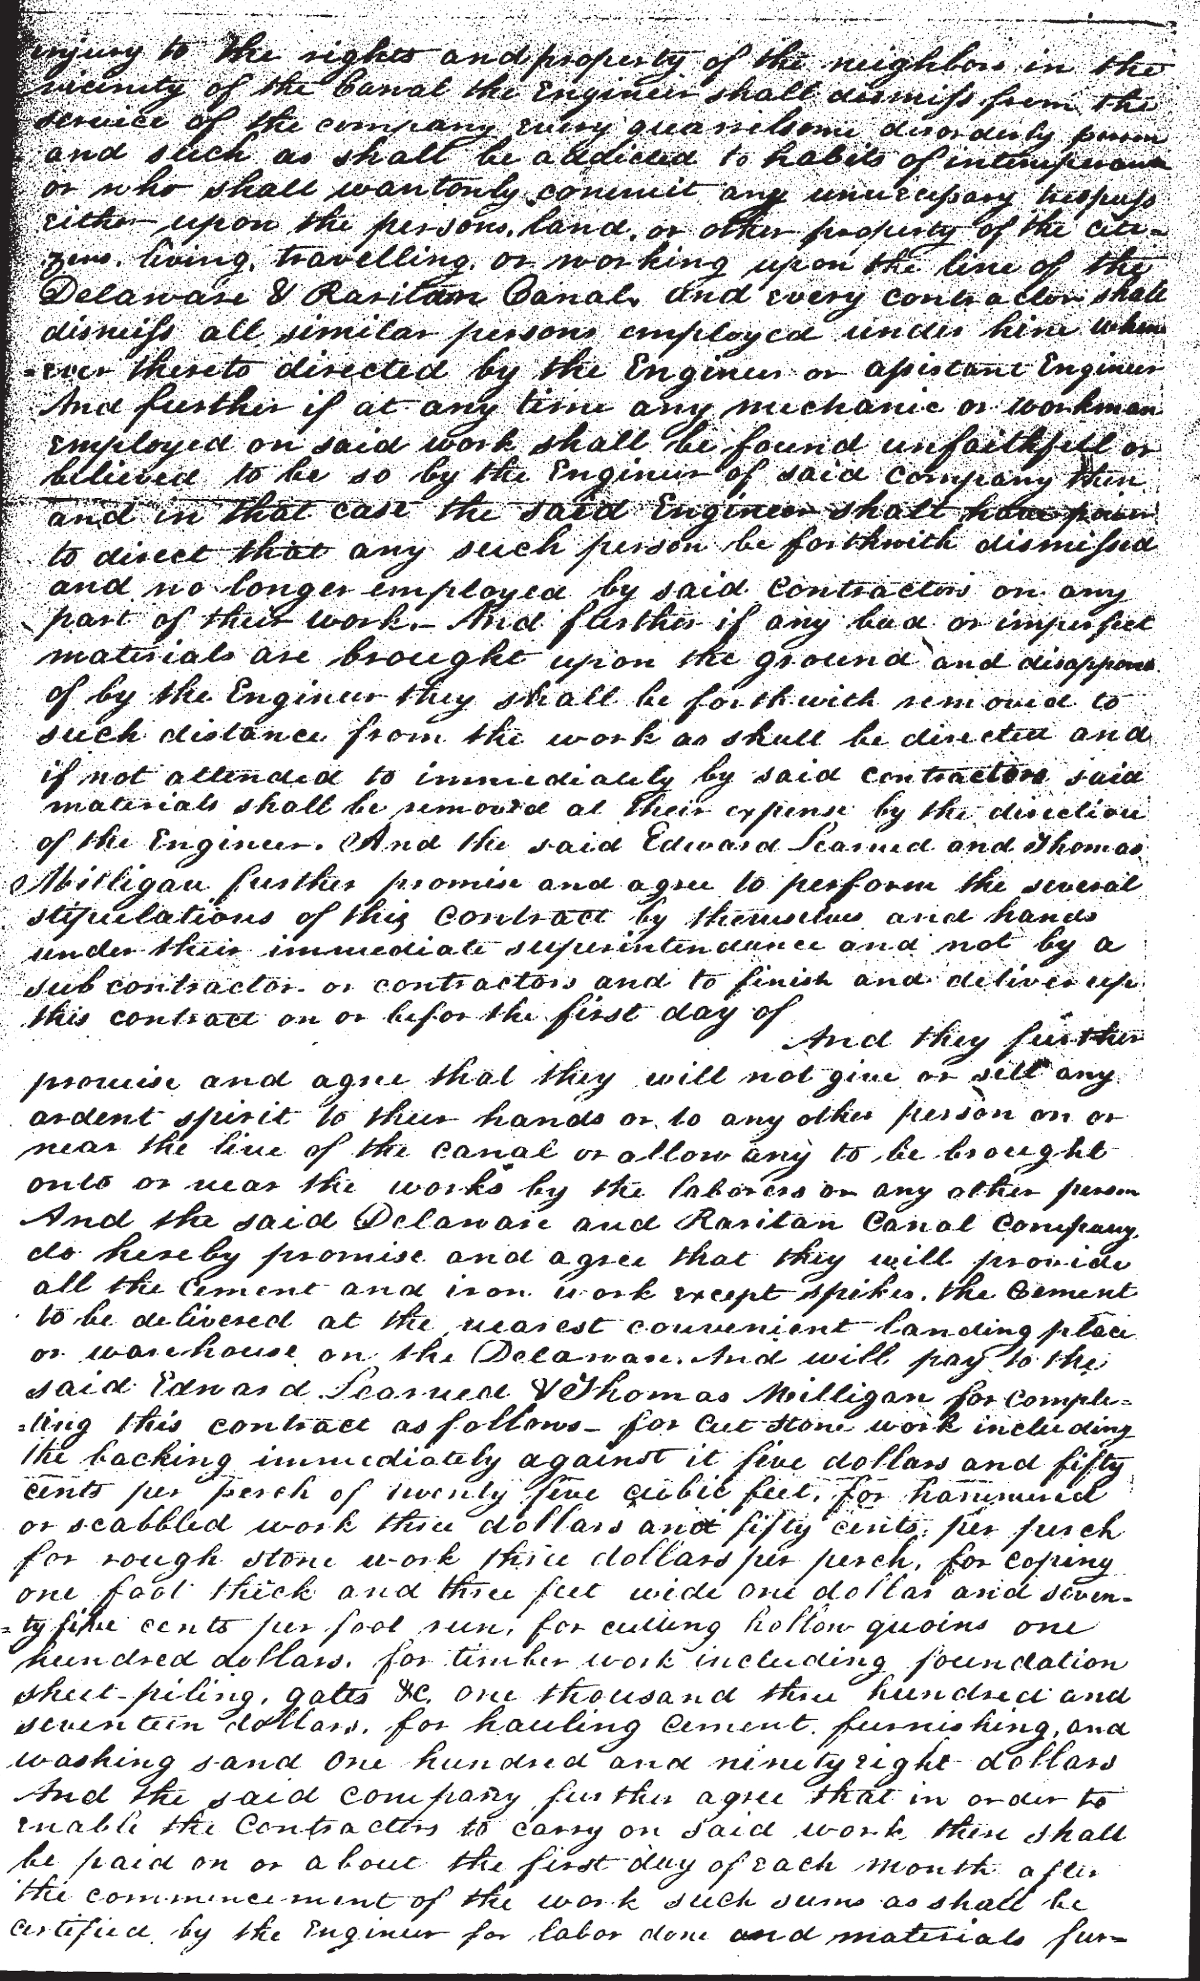 injury to the rights and property of the neighbors in the
vicinity of the Canal the Engineer shall dismiss from the
service of the company every quarrelsome disorderly person
and such as shall be addicted to habits of intemperance
or who shall wantonly commit any unnecessary trespass
either upon the persons, land, or other property of the citi-
zens, living, travelling, or working upon the line of the
Delaware & Raritan Canal, And every contractor shall
dismiss all similar persons employed under him when
-ever thereto directed by the Engineer or assistant Engineer
And further if at any time any mechanic or workman
employed on said work shall be found unfaithfull or
believed to be so by the Engineer of said company then
and in that case the said Engineer shall have power
to direct that any such person be forthwith dismissed
and no longer employed by said contractors on any
part of their work.- And further if any bad or imperfect
materials are brought upon the ground and disapprov
of by the Engineer they shall be forthwith removed to
such distance from the work as shall be directed and
if not attended to immediately by said contractors said
materials shall be removed at their expense by the direction
of the Engineer. And the said Edward Learned and Thomas
Milligan further promise and agree to perform the several
stipulations of this contract by themselves and hands
under their immediate superintendance and not by a
sub contractor or contractors and to finish and deliver up
this contract on or befor the first day of
And they further
promise and agree that they will not give or sell any
ardent spirit to their hands or to any other person on or
near the line of the canal or allow any to be brought
onto or near the works by the laborers or any other person
And the said Delaware and Raritan Canal Company
do hereby promise and agree that they will provide
all the Cement and iron work except spikes, the Cement
to be delivered at the nearest convenient landing place
or warehouse on the Delaware. And will pay to the
said Edward Learned & Thomas Milligan for comple-
-ting this contract as follows- for cut stone work including
the backing immediately against it five dollars and fifty
cents per perch of twenty five cubic feet, for hammered
or scabbled work three dollars and fifty cents per perch
for rough stone work three dollars per perch, for coping
one foot thick and three feet wide one dollar and seven-
-ty five cents per foot run, for cutting hollow quoins one
hundred dollars, for timber work including foundation
sheet-piling, gates &c. one thousand three hundred and
seventeen dollars, for hauling cement, furnishing, and
washing sand one hundred and ninety eight dollars
And the said company further agree that in order to
enable the Contractors to carry on said work there shall
be paid on or about the first day of each month after
the commencement of the work such sums as shall be
certified by the Engineer for labor done and materials fur-